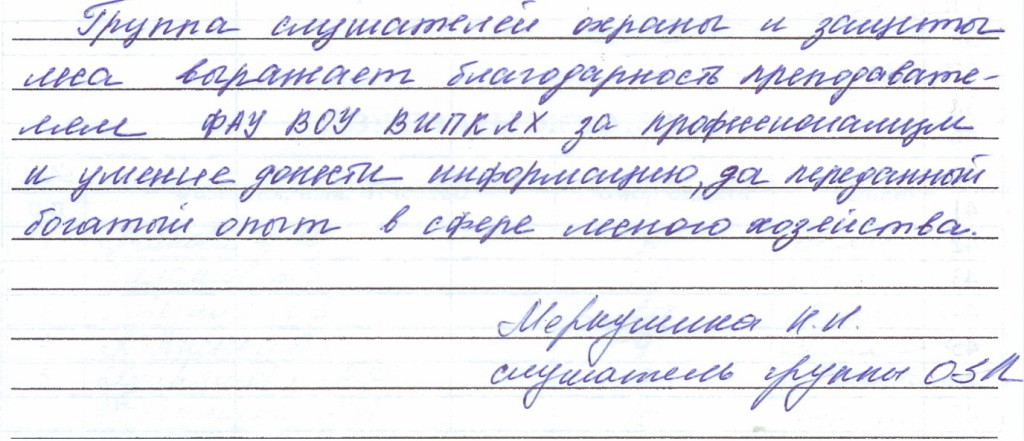 Группа слушателей охраны и защиты
леса выражает благодарность преподавате-
лям ФАУ ВОУ ВИПКЛХ за профессионализм
и умение донести информацию, да переданный
богатый опыт в сфере лесного хозяйства.
И.И.
слушатель группы